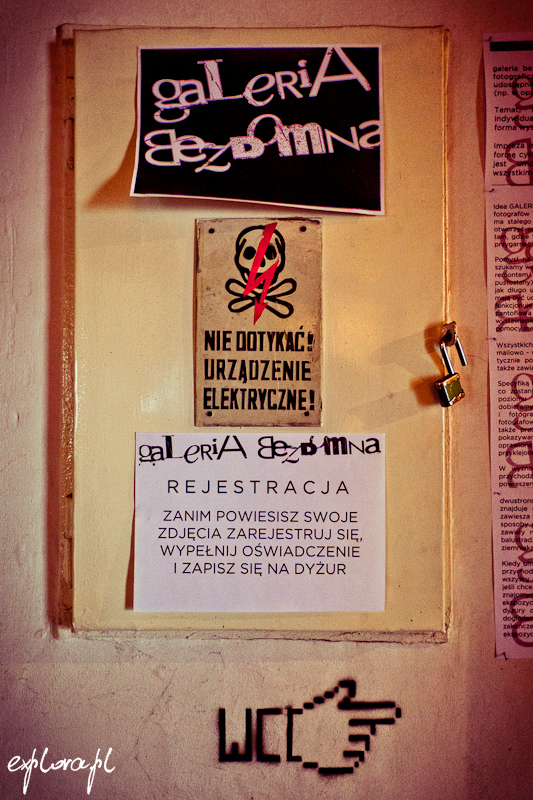 galeria
Bezdomna
NIE DOTYKAĆ!
URZĄDZENIE
ELEKTRYCZNE!
galeria Bezdomna
REJESTRACJA
ZANIM POWIESISZ SWOJE
ZDJĘCIA ZAREJESTRUJ SIĘ,
WYPEŁNIJ OŚWIADCZENIE
I ZAPISZ SIĘ NA DYŻUR
WC
explora.pl
galerie be
fotograficz
udostępni
(np. w op
Temat,
indywidua
forma wys
Impreza
formę cyk
jest
wszystkim
Idea GALER
fotografów
ma stałego
otworze
tam, gdzie
przygarną
Pomysł na
szukamy w
remontem
pustostany
jak długo u
mają być u
funkcjonuje
pomocy
Wszystkich
mailowo - w
tycznie po
także zawia
Specyfiką
co zostan
poziom
i fotograf
fotografow
także prac
pokazywan
oprawion
przyklejon
W wyzna
przychodz
powieszen
dwustronn
znajduje
zawiesza
sposoby
zawisły n
balustrad
ziemniak
Kiedy um
przychodz
wszyscy
jeśli chce
znajomy
ekspozyc
dyżury
zakończe
ekspozyc